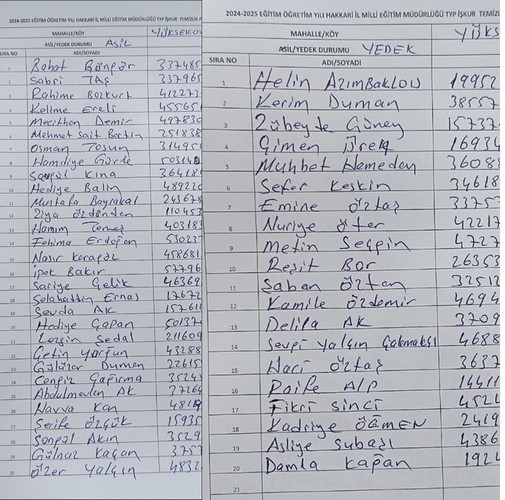 2024-2025 EĞİTİM ÖĞRETİM YILI HAKKARİ İL MİLLİ EĞİTİM MÜDÜRLÜĞÜ TYP İŞKUR TEMİZLİ
MAHALLE/KÖY YÜKSEKOV
ASİL/YEDEK DURUMU ASİL
SIRA NO ADI/SOYADI
1 Rahat Güngör 337485
2 Sabri TAŞ 337965
3 Rahime Bozkurt 412273
4 Kelime Ereli 455651
5 Mecithan Demir 497830
6 Mehmet Sait Bartin 251838
7 Osman Tosun 314951
8 Hamdiye Gürde
9 Songül Kına 364181
10 Hediye Balin 489220
11 Mustafa Bayrakal 243678
12 Ziya özdenden 110453
13 Hanım Temez 403183
14 Fehima Erdoğan 530237
15 Nasır Karagöz 458681
16 ipek Bakır 57796
17 Sariye Çelik 46369
18 Selahattin Ertaş 17672
19 Sevda AK 157611
20 Hediye Çapan 50137
21 Lezgin Sedal 211609
22 Çetin yorgun 43288
23 Gülüzar Duman 22615
24 Cengiz Çapırma 35241
25 Abdulmevlan AK 37264
26 Havva Kan 4819
27 Şerife Özgök 15935
28 Songül Akın 3529
29 Gülnaz Kaçan 3757
30 Özer Yalçın 4832
2024-2025 EĞİTİM ÖĞRETİM YILI HAKKARİ İL MİLLİ EĞİTİM MÜDÜRLÜĞÜ TYP İŞKUR TEMİZL
MAHALLE/KÖY YÜKS
ASİL/YEDEK DURUMU YEDEK
SIRA NO ADI/SOYADI
1 Helin AZIMBAKLOU 19952
2 Kerim Duman 38557
3 Zübeyde Güney 15737
4 Çimen 16934
5 Muhbet Hemeden 36088
6 Sefer Keskin 34618
7 Emine öztaş 33753
8 Nuriye öter 42217
9 Metin Seçgin 4727
10 Reşit Bor 26353
11 Şaban Öztan 32512
12 Kamile özdemir 4694
13 Delila AK 3709
14 Sevgi Yalçın Çakmakçı 4688
15 Naci Öztaş 3637
16 Raife Alp 14411
17 Fikri Sinci 4521
18 Kadriye ÖĞMEN 2419
19 Asliye Subaşı 4386
20 Damla Kapan 1921
21